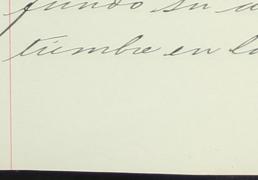 fundo su a
tumbre en lo